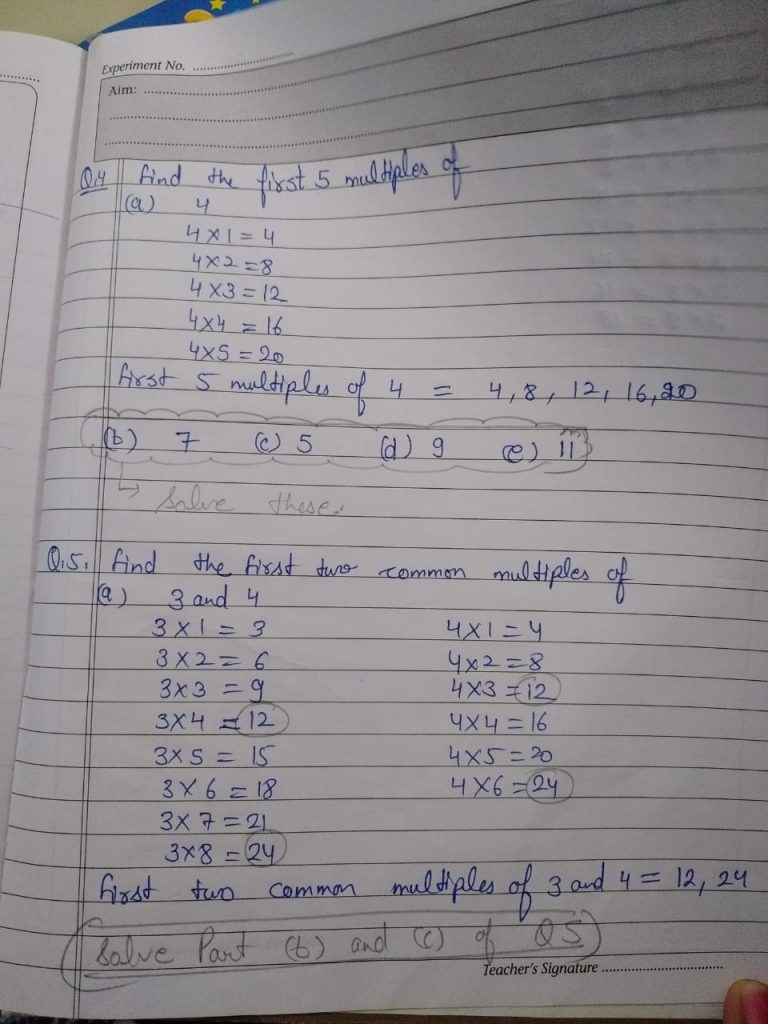 Experiment No. ............................
Aim: ............................
Q.4 find the first 5 multiples of
(a) 4
4 x 1 = 4
4 x 2 = 8
4 x 3 = 12
4 x 4 = 16
4 x 5 = 20
first 5 multiples of 4 = 4, 8, 12, 16, 20
(b) 7 (c) 5 (d) 9 (e) 11
↳ Solve these.
Q.5. find the first two common multiples of
(a) 3 and 4
3 x 1 = 3 4 x 1 = 4
3 x 2 = 6 4 x 2 = 8
3 x 3 = 9 4 x 3 = 12
3 x 4 = 12 4 x 4 = 16
3 x 5 = 15 4 x 5 = 20
3 x 6 = 18 4 x 6 = 24
3 x 7 = 21
3 x 8 = 24
first two common multiples of 3 and 4 = 12, 24
Solve Part (b) and (c) of Q5
Teacher's Signature ............................